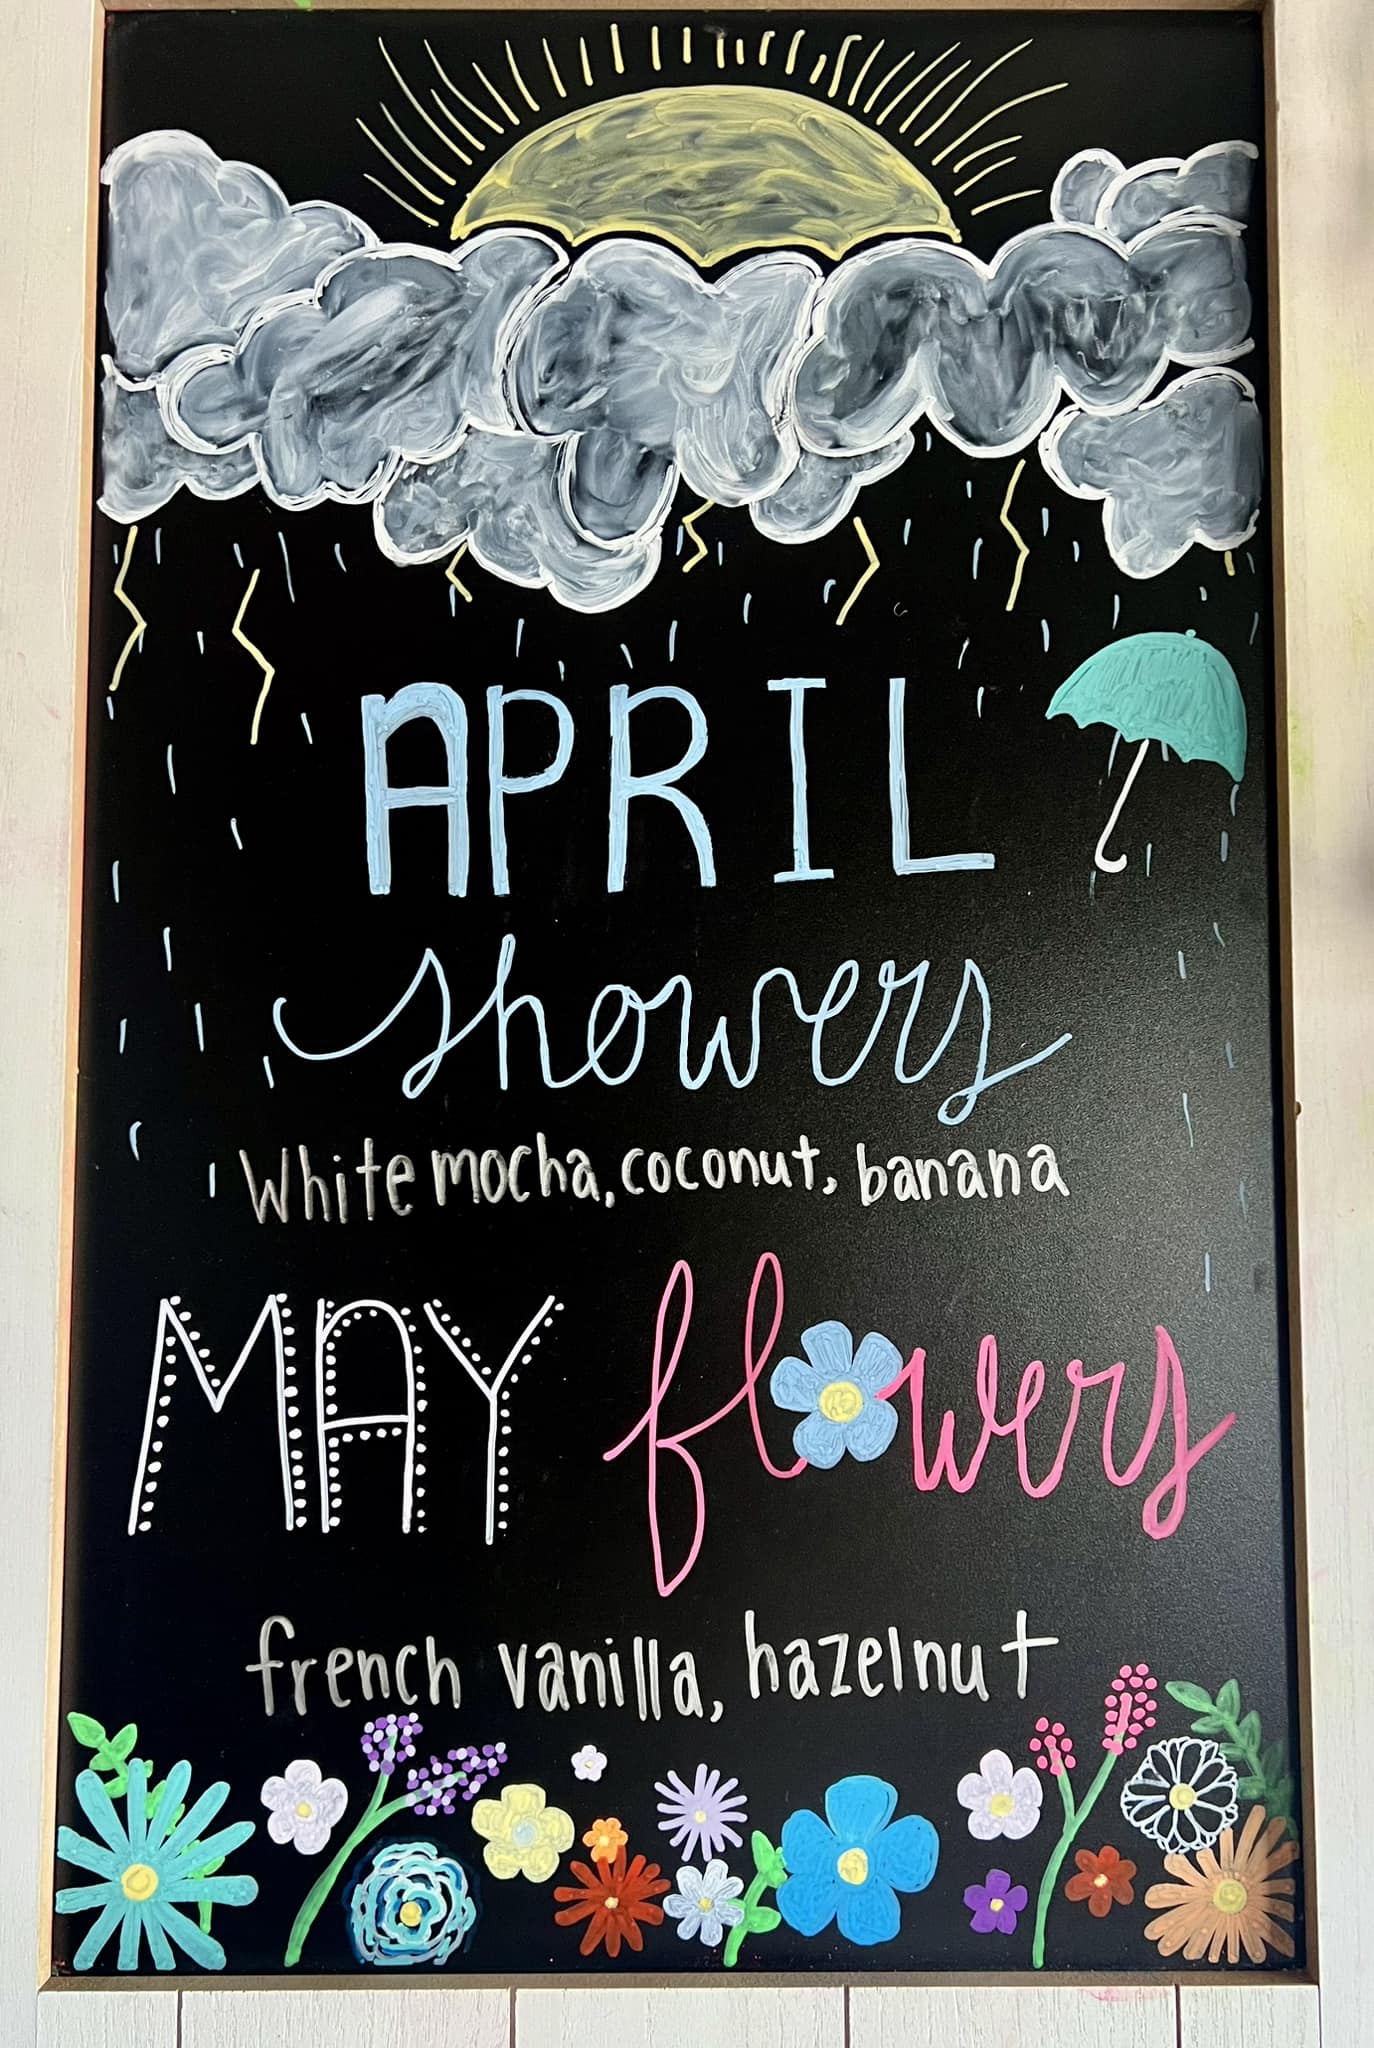 APRIL
showers
White mocha, coconut, banana
MAY flowers
french vanilla, hazelnut